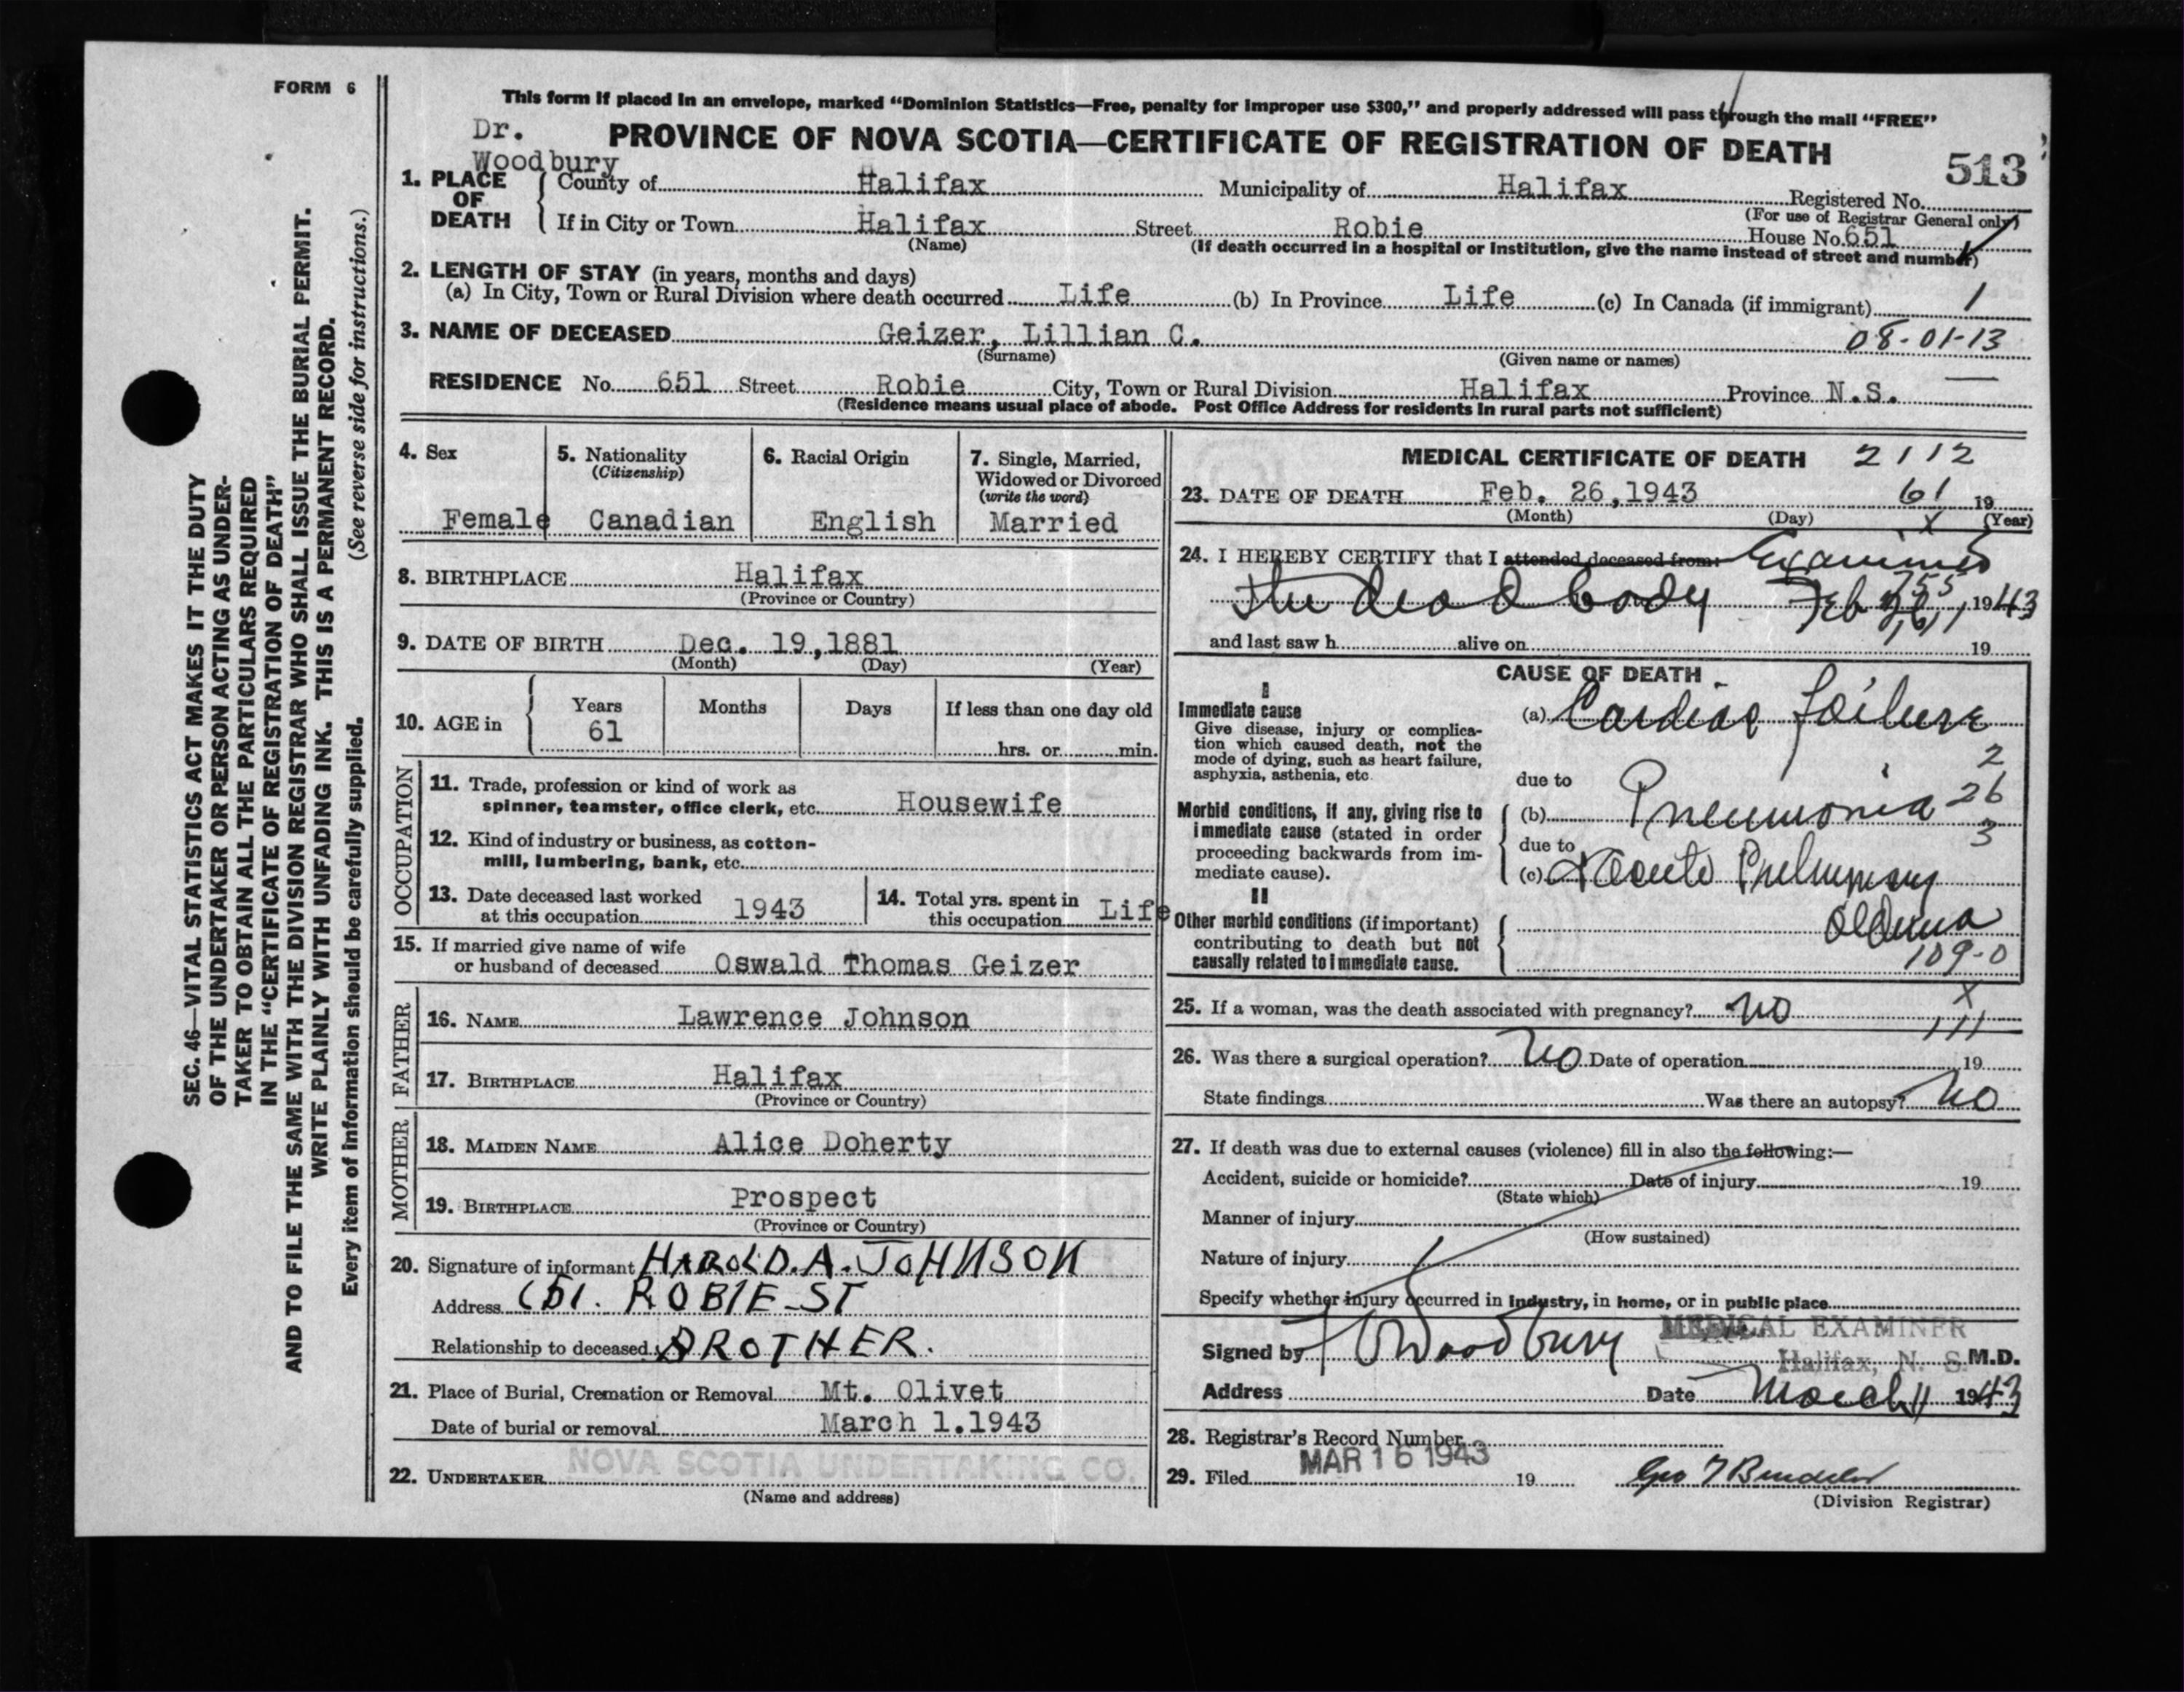 FORM 6
This form if placed in an envelope, marked "Dominion Statistics—Free, penalty for improper use $300," and properly addressed will pass through the mail "FREE"
Dr. Woodbury
PROVINCE OF NOVA SCOTIA—CERTIFICATE OF REGISTRATION OF DEATH
513
1. PLACE OF DEATH
County of Halifax Municipality of Halifax Registered No.
(For use of Registrar General only)
If in City or Town Halifax Street Robie House No. 651
(Name) (If death occurred in a hospital or institution, give the name instead of street and number)
2. LENGTH OF STAY (in years, months and days)
(a) In City, Town or Rural Division where death occurred Life (b) In Province Life (c) In Canada (if immigrant) 1
3. NAME OF DECEASED Geizer, Lillian C. 08-01-13
(Surname) (Given name or names)
RESIDENCE No. 651 Street Robie City, Town or Rural Division Halifax Province N.S.
(Residence means usual place of abode. Post Office Address for residents in rural parts not sufficient)
4. Sex
Female
5. Nationality
(Citizenship)
Canadian
6. Racial Origin
English
7. Single, Married,
Widowed or Divorced
(write the word)
Married
8. BIRTHPLACE Halifax
(Province or Country)
9. DATE OF BIRTH Dec. 19,1881
(Month) (Day) (Year)
10. AGE in
Years Months Days If less than one day old
61
hrs. or min.
OCCUPATION
11. Trade, profession or kind of work as
spinner, teamster, office clerk, etc. Housewife
12. Kind of industry or business, as cotton-
mill, lumbering, bank, etc.
13. Date deceased last worked
at this occupation 1943
14. Total yrs. spent in
this occupation Life
15. If married give name of wife
or husband of deceased Oswald Thomas Geizer
FATHER
16. NAME Lawrence Johnson
17. BIRTHPLACE Halifax
(Province or Country)
MOTHER
18. MAIDEN NAME Alice Doherty
19. BIRTHPLACE Prospect
(Province or Country)
20. Signature of informant HAROLD. A. JOHNSON
Address 651. ROBIE ST
Relationship to deceased BROTHER.
21. Place of Burial, Cremation or Removal Mt. Olivet
Date of burial or removal March 1.1943
22. UNDERTAKER NOVA SCOTIA UNDERTAKING CO.
(Name and address)
MEDICAL CERTIFICATE OF DEATH 2112
23. DATE OF DEATH Feb. 26,1943 61 19
(Month) (Day) X (Year)
24. I HEREBY CERTIFY that I attended deceased from: Examined
the dead body Feb 26, 1943
and last saw h alive on 19
CAUSE OF DEATH
I
Immediate cause
Give disease, injury or complica-
tion which caused death, not the
mode of dying, such as heart failure,
asphyxia, asthenia, etc.
(a) Cardiac Failure
2
due to
Morbid conditions, if any, giving rise to
immediate cause (stated in order
proceeding backwards from im-
mediate cause).
(b) Pneumonia 26
due to 3
(c) Acute Pulmonary
Oedema
II
Other morbid conditions (if important)
contributing to death but not
causally related to immediate cause.
109-0
25. If a woman, was the death associated with pregnancy? No X
111
26. Was there a surgical operation? No Date of operation 19
State findings Was there an autopsy? No
27. If death was due to external causes (violence) fill in also the following:—
Accident, suicide or homicide? Date of injury 19
(State which)
Manner of injury
(How sustained)
Nature of injury
Specify whether injury occurred in industry, in home, or in public place
MEDICAL EXAMINER
Signed by Woodbury Halifax, N. S. M.D.
Address Date March 11 1943
28. Registrar's Record Number
29. Filed MAR 16 1943 19
(Division Registrar)
SEC. 46—VITAL STATISTICS ACT MAKES IT THE DUTY
OF THE UNDERTAKER OR PERSON ACTING AS UNDER-
TAKER TO OBTAIN ALL THE PARTICULARS REQUIRED
IN THE "CERTIFICATE OF REGISTRATION OF DEATH"
AND TO FILE THE SAME WITH THE DIVISION REGISTRAR WHO SHALL ISSUE THE BURIAL PERMIT.
WRITE PLAINLY WITH UNFADING INK. THIS IS A PERMANENT RECORD.
Every item of information should be carefully supplied. (See reverse side for instructions.)